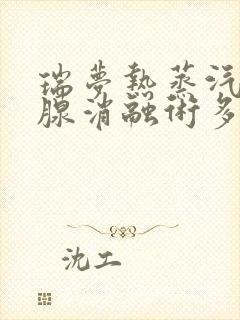 瑞夢熱蒸汽
腺消融術多
沈工